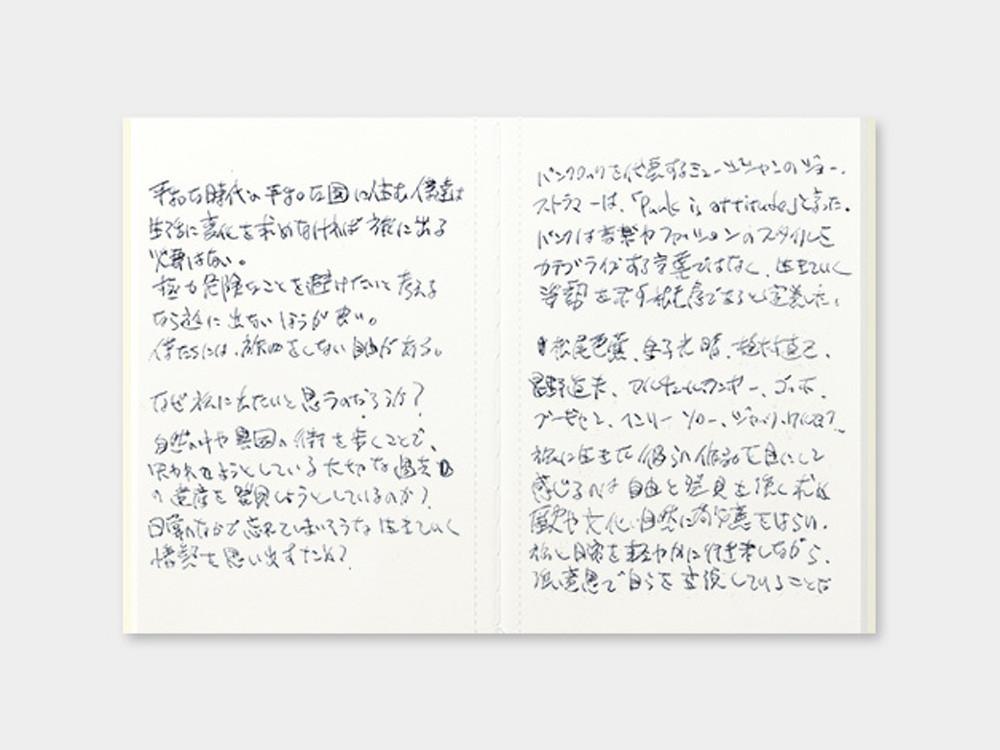 平和な時代の平和な国に住む僕達は
生活に変化を求めなければ旅に出る
必要はない。
極力危険なことを避けたいと考える
なら旅に出ないほうが良い。
僕たちには、旅をしない自由がある。
なぜ旅に出たいと思うのだろうか?
自然の中や異国の街を歩くことで、
失われようとしている大切な過去
の遺産を発見しようとしているのか?
日常のなかで忘れてしまいそうな生きていく
姿勢を思い出すため?
パンクロックを代表するミュージシャンのジョー・
ストラマーは、「Punk is attitude」と言った。
パンクは音楽やファッションのスタイルを
カテゴライズする言葉ではなく、生きていく
姿勢を示す言葉であると定義した。
松尾芭蕉、金子光晴、植村直己、
星野道夫、ゴッホ、
ヘンリー・ソロー、ジャック・
旅に生きた彼らの作品を目にして
感じるのは自由と発見を強く求め
歴史や文化、自然に敬意をはらい、
旅と日常を軽やかに行き来しながら、
強い意思で自らを表現していることだ